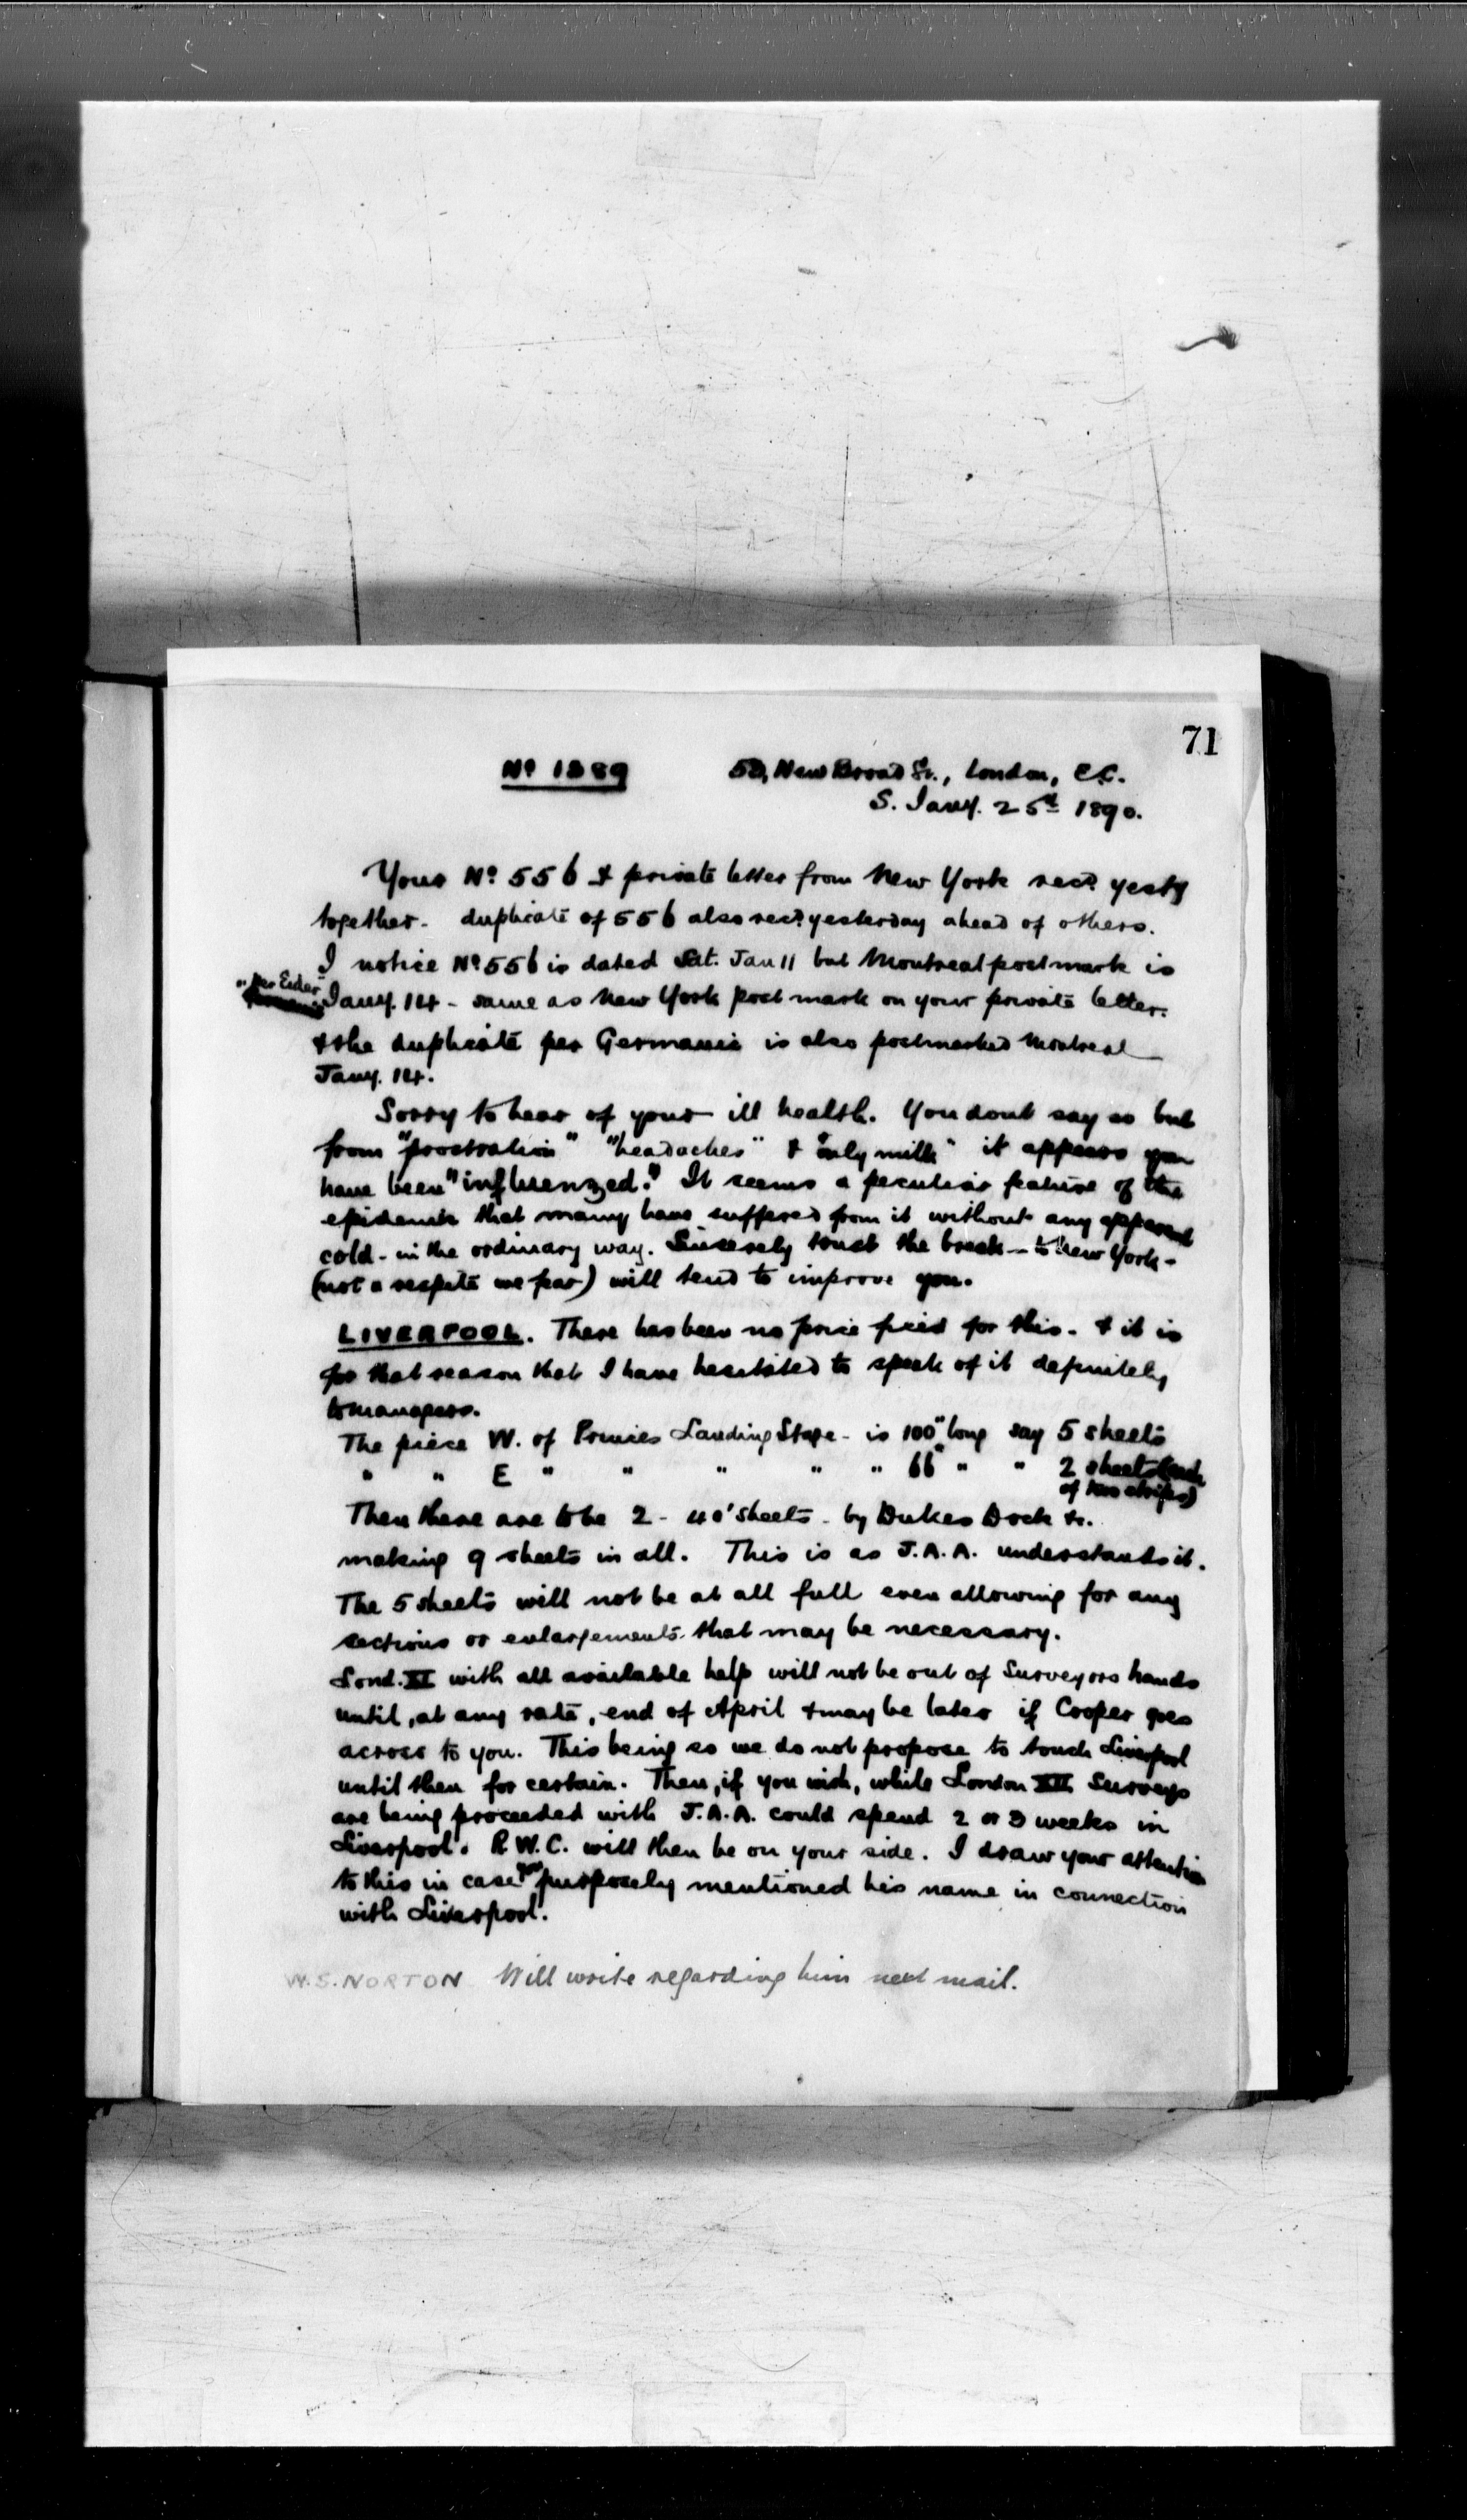 71
No 1389 50, New Broad St., London, E.C.
S. Jany. 25th 1890.
Your No. 556 & private letter from New York recd. yesty
together - duplicate of 556 also recd. yesterday ahead of others.
I notice No. 556 is dated Sat. Jan 11 but Montreal postmark is
"per Eider"
Jany. 14 - same as New York post mark on your private letter.
& the duplicate per Germanic is also postmarked Montreal
Jany. 14.
Sorry to hear of your ill health. You dont say so but
from "prostration" "headaches" & "only milk" it appears you
have been "influenzed." It seems a peculiar feature of the
epidemic that many have suffered from it without any apparent
cold - in the ordinary way. Sincerely trust the break - to New York -
(not a respite we fear) will tend to improve you.
LIVERPOOL. There has been no price fixed for this - & it is
for that reason that I have hesitated to speak of it definitely
to managers.
The piece W. of Princes Landing Stage - is 100" long say 5 sheets
" " E " " " " " 66" " " 2 sheets (each
of two strips)
Then there are to be 2 - 40' sheets - by Dukes Dock &c.
making 9 sheets in all. This is as J.A.A. understands it.
The 5 sheets will not be at all full even allowing for any
sections or enlargements that may be necessary.
Lond. XI with all available help will not be out of Surveyors hands
until, at any rate, end of April & may be later if Cooper goes
across to you. This being so we do not propose to touch Liverpool
until then for certain. Then, if you wish, while London XII Surveys
are being proceeded with J.A.A. could spend 2 or 3 weeks in
Liverpool. R.W.C. will then be on your side. I draw your attention
to this in case you purposely mentioned his name in connection
with Liverpool.
W.S. NORTON Will write regarding him next mail.